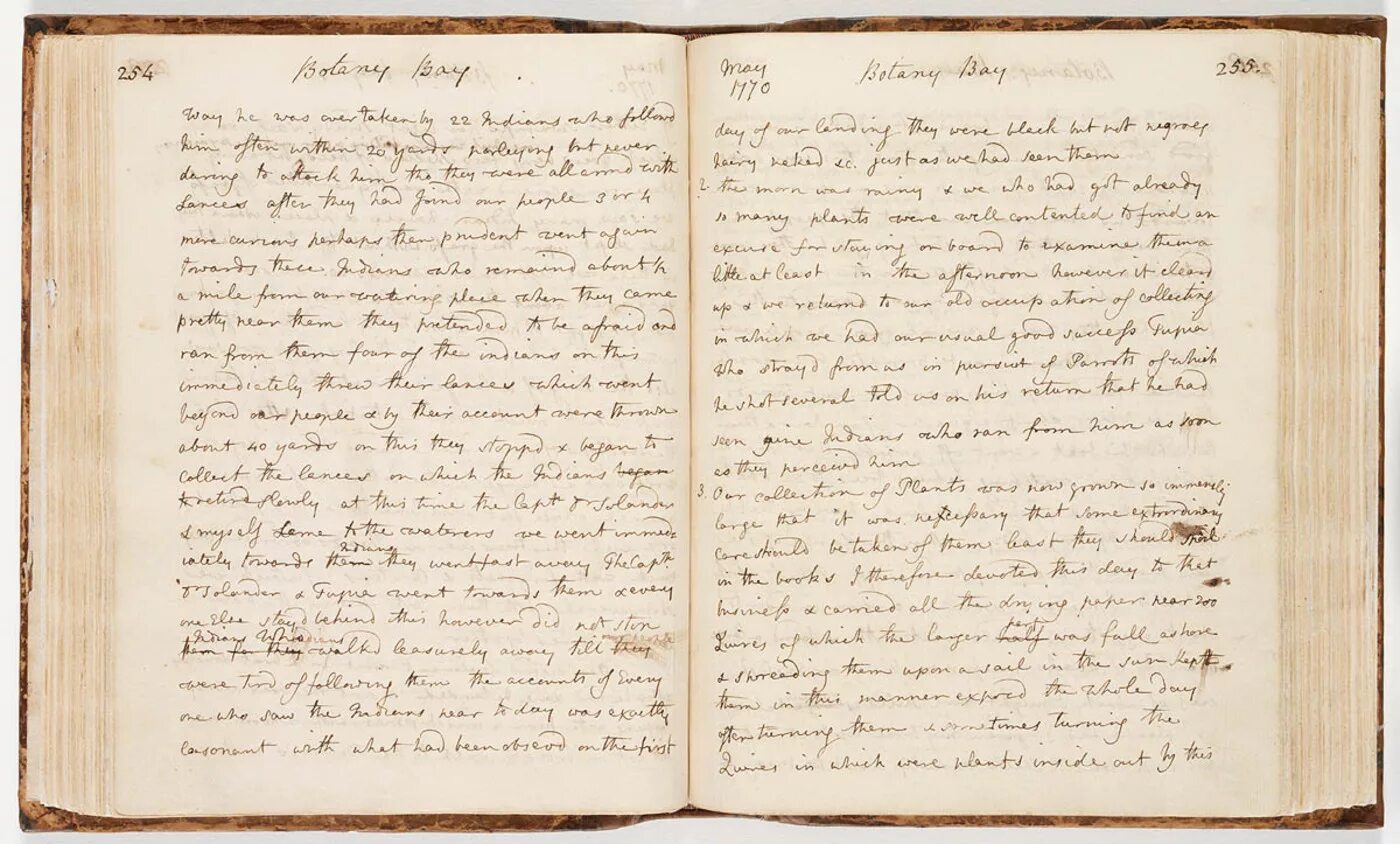 254
Botany Bay .
way he was overtaken by 22 Indians who followd
him often within 20 yards parleying but never
daring to attack him tho they were all armd with
Lances after they had joind our people 3 or 4
more curious perhaps than prudent went again
towards these Indians who remaind about ½
a mile from our watering place when they came
pretty near them they pretended to be afraid and
ran from them four of the indians on this
immediately threw their lances which went
beyond our people & by their account were thrown
about 40 yards on this they stoppd & began to
collect the lances on which the Indians began
to retird slowly at this time the Captn Dr Solander
& myself Came to the waterers we went immed-
iately towards them Indians they went fast away The Captn
Dr Solander & Tupia went towards them & every
one Else stayd behind this however did not stop
Indians Who
them for they walkd leasurely away till they
were tird of following them the accounts of Every
one who saw the Indians near today was exactly
consonant with what had been observd on the first
May
1770
Botany Bay
255.
day of our landing they were black but not negroes
hairy naked &c. just as we had seen them
2. the morn was rainy & we who had got already
so many plants were well contented to find an
excuse for staying on board to examine them a
little at least in the afternoon however it cleard
up & we returnd to our old occupation of collecting
in which we had our usual good success Tupia
who strayd from us in pursuit of Parrots of which
he shot several told us on his return that he had
seen nine Indians who ran from him as soon
as they perceivd him
3. Our collection of Plants was now grown so immensly
large that it was necessary that some extrordinary
care should be taken of them least they should spoil
in the books I therefore devoted this day to that
business & carried all the drying paper near 200
Quires of which the larger half part was full ashore
& spreading them upon a sail in the sun kept
them in this manner exposd the whole day
often turning them & sometimes turning the
Quires in which were plants inside out by this